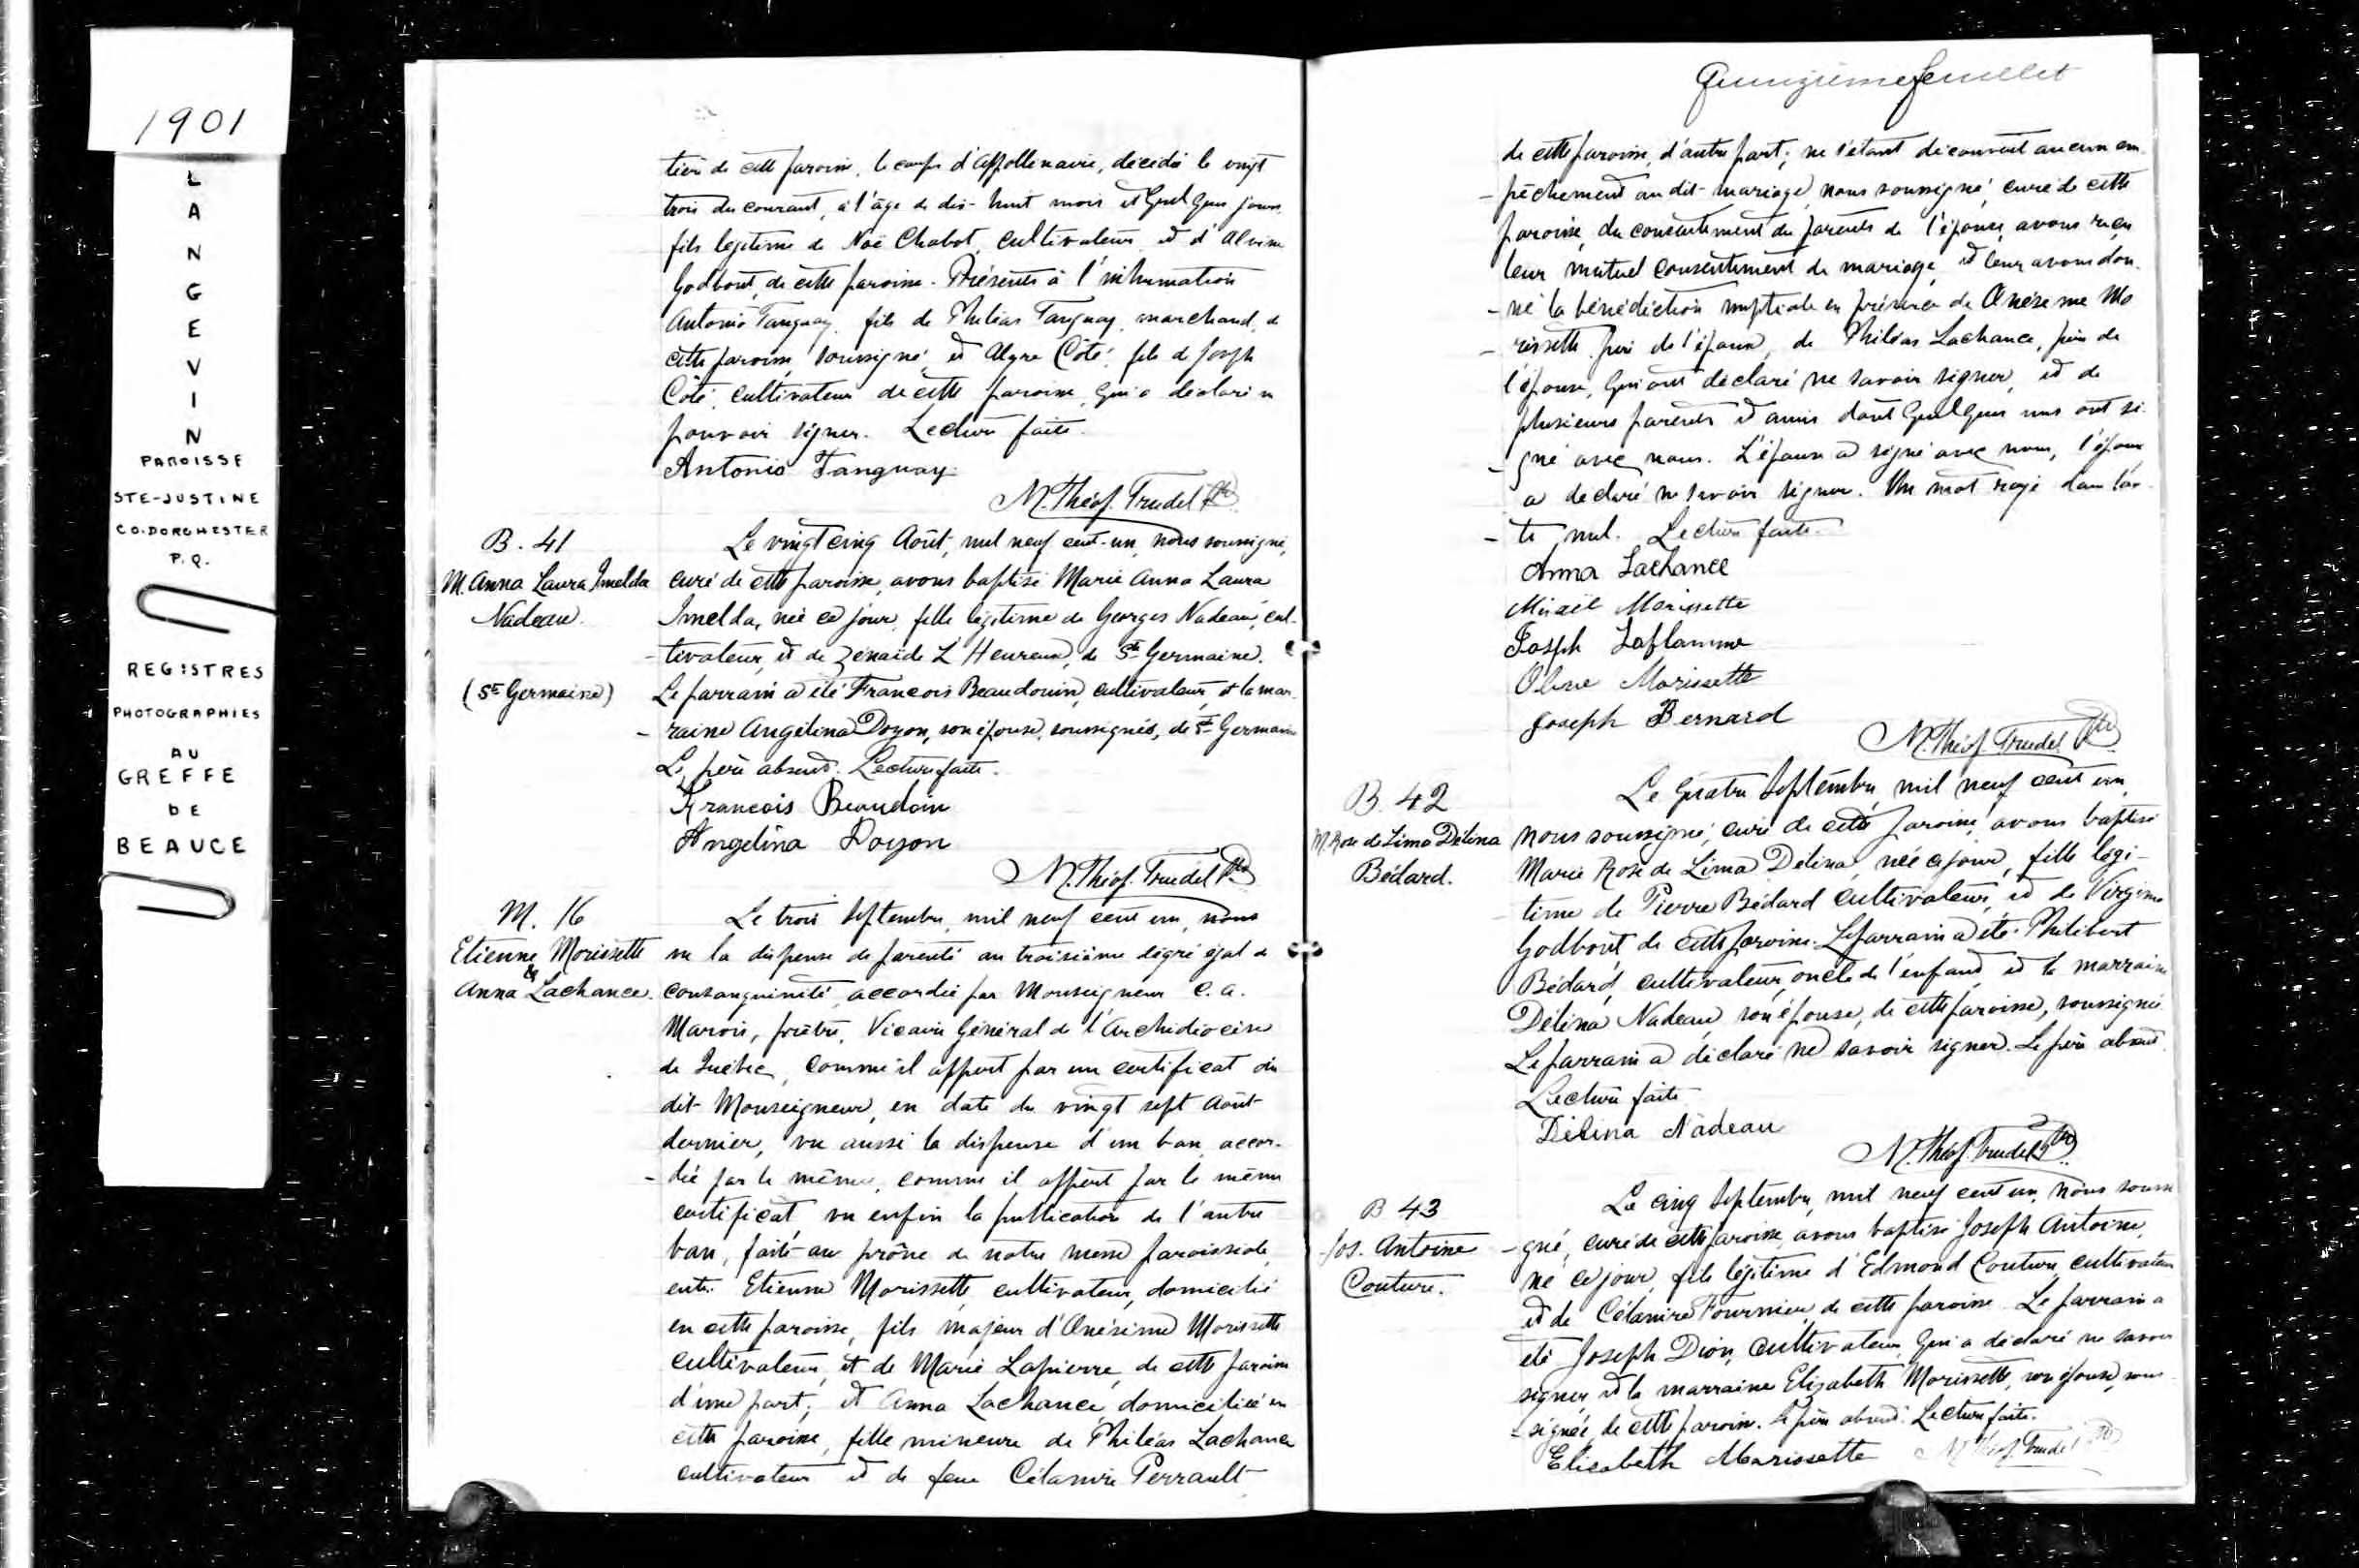 1901
LANGEVIN
PAROISSE
STE-JUSTINE
CO. DORCHESTER
P.Q.
REGISTRES
PHOTOGRAPHIES
AU
GREFFE
DE
BEAUCE
tière de cette paroisse, le corps d'Appollinaire, décédé le vingt
trois du courant, à l'âge de dix-huit mois et quelques jours
fils légitime de Noë Chabot, cultivateur et d'Alvina
Godbout, de cette paroisse. Présents à l'inhumation
Antonio Tanguay, fils de Philéas Tanguay, marchand, de
cette paroisse, soussigné, et Alyre Côté, fils de Joseph
Côté, cultivateur de cette paroisse, qui a déclaré n
pouvoir signer. Lecture faite.
Antonio Tanguay
N. Théop. Trudel Ptre
B. 41
M. Anna Laura Imelda
Nadeau
(Ste Germaine)
Le vingt cinq Août, mil neuf cent-un, nous soussigné,
curé de cette paroisse, avons baptisé Marie Anna Laura
Imelda, née ce jour, fille légitime de Georges Nadeau, cul-
-tivateur, et de Zenaïde L'Heureux, de Ste Germaine.
Le parrain a été François Beaudouin, cultivateur, et la mar-
-raine Angélina Doyon, son épouse, soussignés, de Ste Germaine
Le père absent. Lecture faite.
François Beaudoin
Angélina Doyon
N. Théop. Trudel Ptre
M. 16
Etienne Morissette
&
Anna Lachance.
Le trois Septembre, mil neuf cent un, nous
vu la dispense de parenté au troisième degré égal de
consanguinité, accordée par Monseigneur C. A.
Marois, prêtre, Vicaire Général de l'Archidiocèse
de Québec, comme il appert par un certificat du
dit Monseigneur, en date du vingt sept Août
dernier, vu aussi la dispense d'un ban, accor-
-dée par le même, comme il appert par le même
certificat, vu enfin la publication de l'autre
ban, faite au prône de notre messe paroissiale,
entre Etienne Morissette, cultivateur, domicilié
en cette paroisse, fils majeur d'Onésime Morissette
cultivateur, et de Marie Lapierre, de cette paroisse
d'une part; et Anna Lachance, domiciliée en
cette paroisse, fille mineure de Philéas Lachance
cultivateur et de feue Célanire Perrault
Quinzième feuillet
de cette paroisse, d'autre part; ne s'étant découvert aucun em-
-pêchement au dit mariage, nous soussigné, curé de cette
paroisse, du consentement des parents de l'épouse, avons reçu
leur mutuel consentement de mariage, et leur avons don-
-né la bénédiction nuptiale en présence de Onésime Mo
-rissette père de l'époux, de Philéas Lachance, père de
l'épouse, qui ont déclaré ne savoir signer, et de
plusieurs parents et amis dont quelques uns ont si-
-gné avec nous. L'épouse a signé avec nous, l'époux
a déclaré ne savoir signer. Un mot rayé dans l'ac-
-te nul. Lecture faite.
Anna Lachance
Misaël Morissette
Joseph Laflamme
Morissette
Joseph Bernard
N. Théop. Trudel Ptre
B. 42
M. Rose de Lima Délina
Bédard.
Le quatre Septembre, mil neuf cent un,
nous soussigné, curé de cette paroisse, avons baptisé
Marie Rose de Lima Délina, née ce jour, fille légi-
time de Pierre Bédard cultivateur, et de Virginie
Godbout de cette paroisse. Le parrain a été Philibert
Bédard, cultivateur, oncle de l'enfant, et la marraine
Délina Nadeau son épouse, de cette paroisse, soussignée
Le parrain a déclaré ne savoir signer. Le père absent.
Lecture faite
Délina Nadeau
N. Théop. Trudel Ptre
B 43
Jos. Antoine
Couture.
Le cinq Septembre, mil neuf cent un, nous soussi
-gné, curé de cette paroisse avons baptisé Joseph Antoine,
né ce jour, fils légitime d'Edmond Couture, cultivateur
et de Célanire Fournier, de cette paroisse. Le parrain a
été Joseph Dion, cultivateur, qui a déclaré ne savoir
signer, et la marraine Elizabeth Morissette, son épouse, sous-
-signée, de cette paroisse. Le père absent. Lecture faite.
Elizabeth Morissette N. Théop. Trudel Ptre